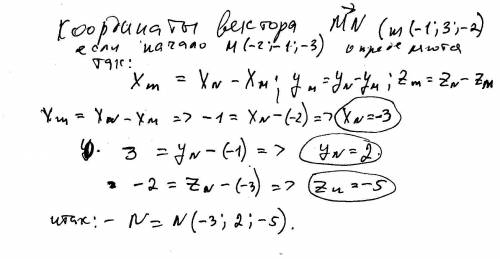 Координаты вектора MN (m(-1; 3; -2)
если начало M(-2; -1; -3) определяются
так:
Xm = XN - XM; ym = yN - yM; Zm = ZN - ZM
Xm = XN - XM => -1 = XN - (-2) => XN = -3
y. 3 = yN - (-1) => yN = 2.
-2 = ZN - (-3) => ZN = -5
итак: - N = N(-3; 2; -5).